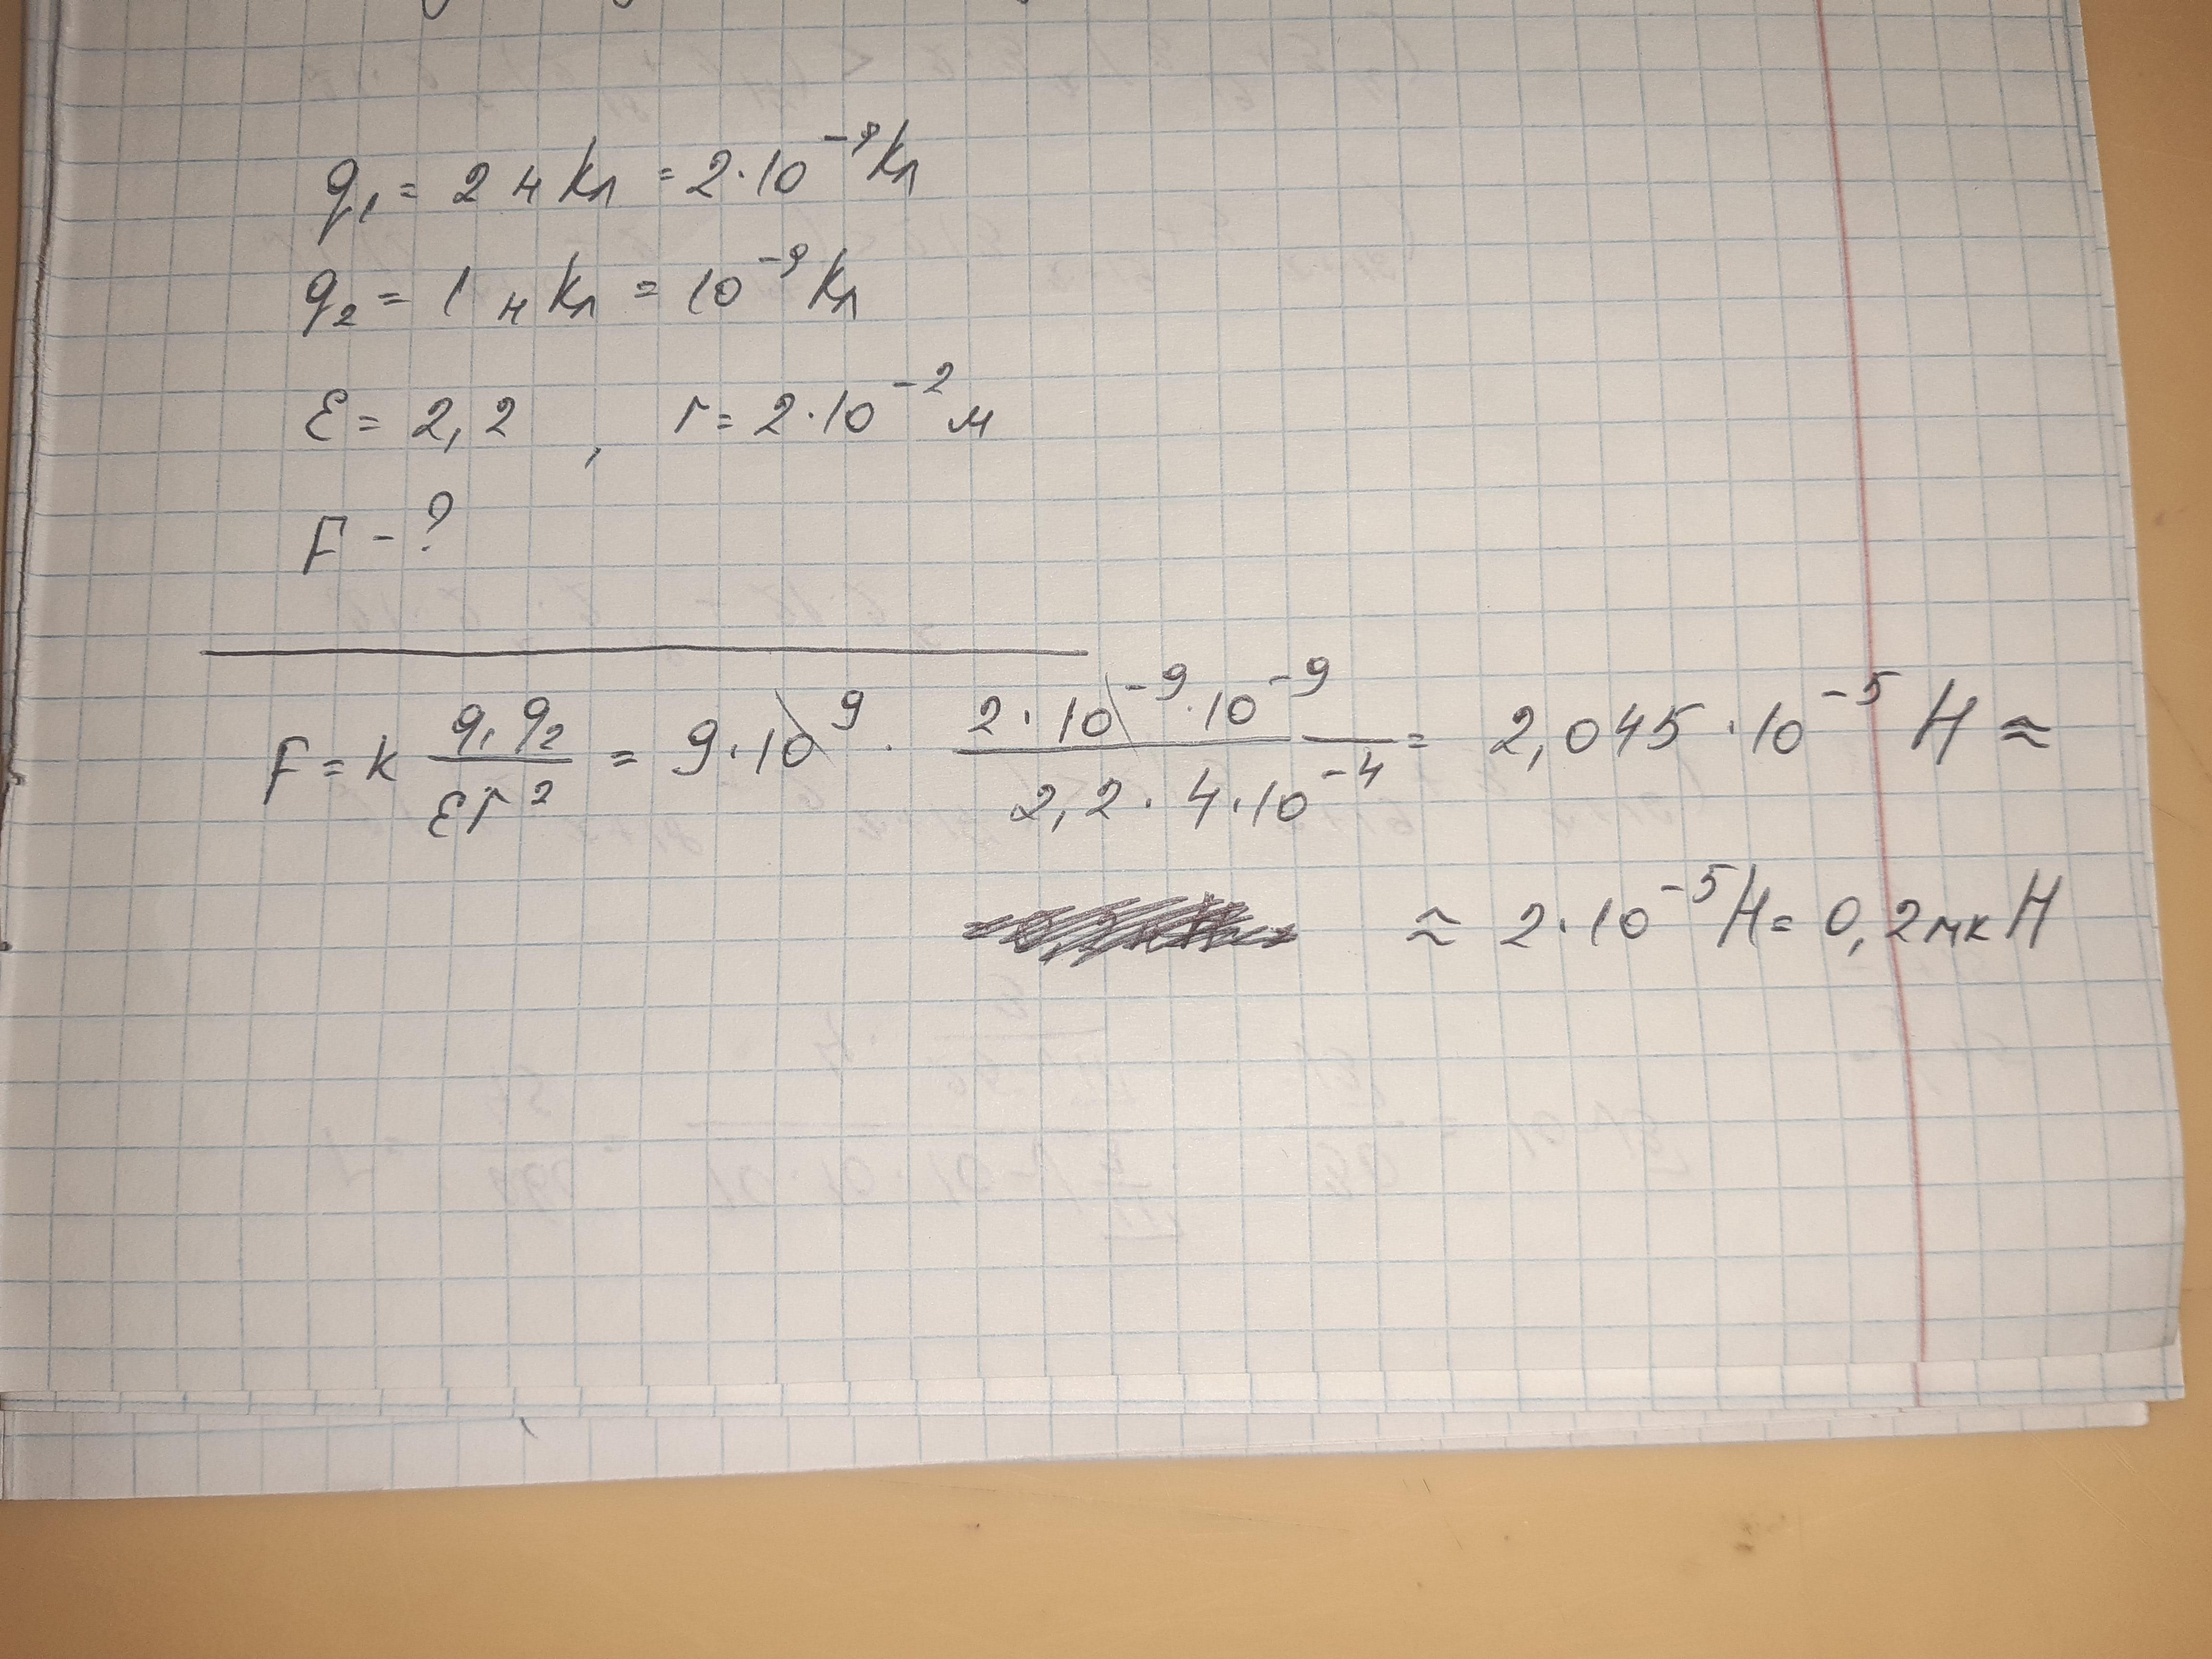 q₁ = 2 нКл = 2·10⁻⁹ Кл
q₂ = 1 нКл = 10⁻⁹ Кл
ε = 2,2 , r = 2·10⁻² м
F - ?
F = k q₁q₂ / εr² = 9·10⁹ · 2·10⁻⁹·10⁻⁹ / 2,2·4·10⁻⁴ = 2,045·10⁻⁵ Н ≈
≈ 2·10⁻⁵ Н = 0,2 мкН